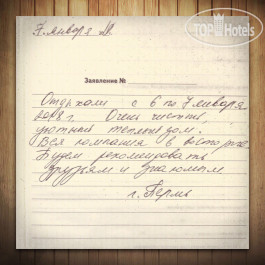 TOP Hotels
7 января
Заявление №
Отдыхали с 6 по 7 января
2018 г. Очень чистый,
уютный теплый дом.
Вся компания в восторге.
Будем рекомендовать
друзьям и знакомым
г. Пермь